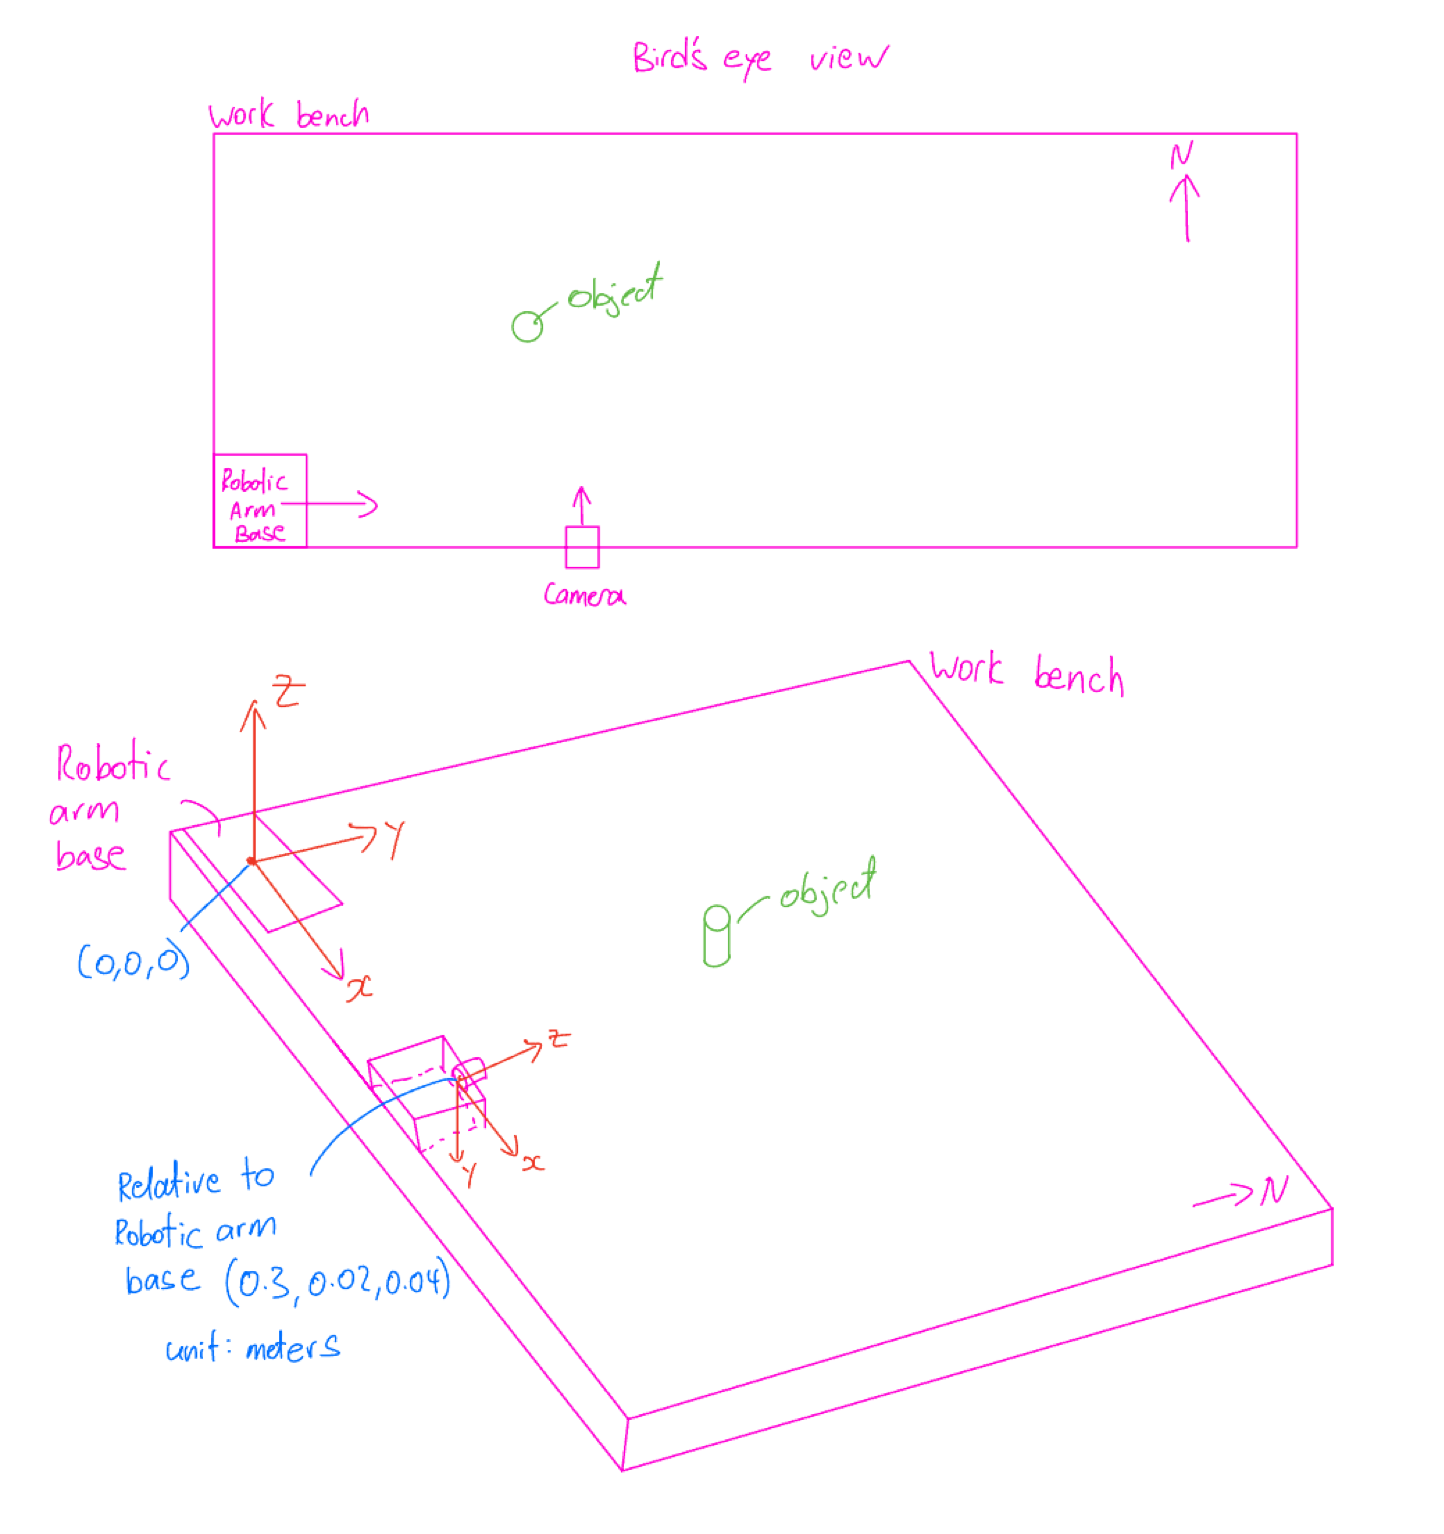 Bird's eye view
Work bench
N
object
Robotic
Arm
Base
Camera
Z
Work bench
Robotic
arm
base
Y
object
(0,0,0)
x
z
x
Y
N
Relative to
Robotic arm
base (0.3, 0.02, 0.04)
unit: meters